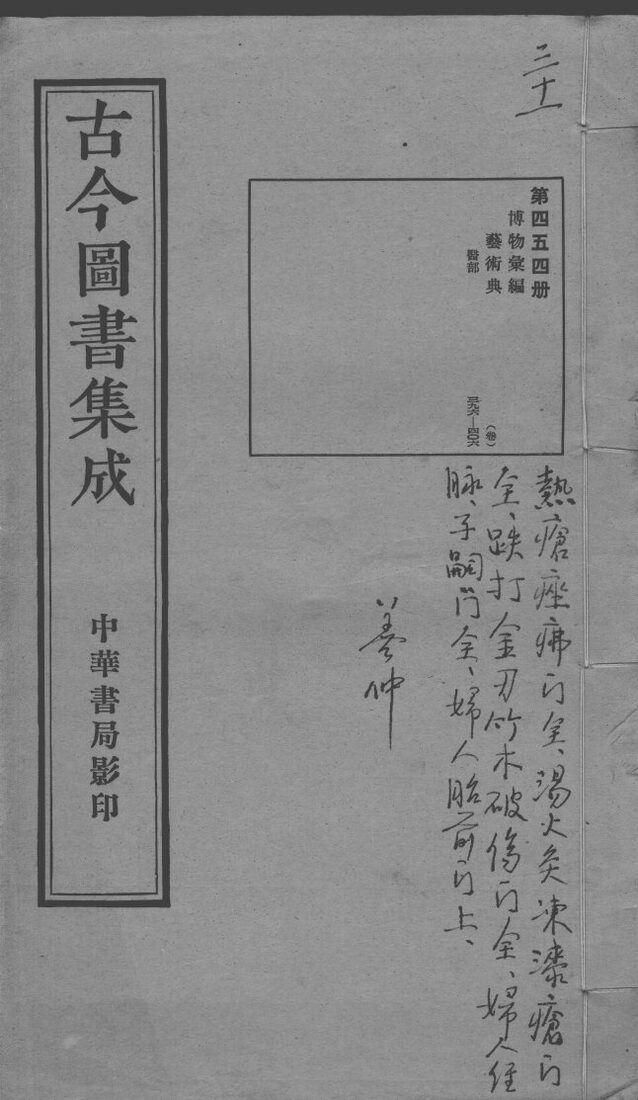 三十一
第四五四册
博物彙編
藝術典
醫部
(卷)
三九六—四〇六
熱瘡痤疿门全、湯火灸凍漆瘡门
全、跌打金刃竹木破傷门全、婦人經
脉、子嗣门全、婦人胎前门上、
養仲
古今圖書集成
中華書局影印